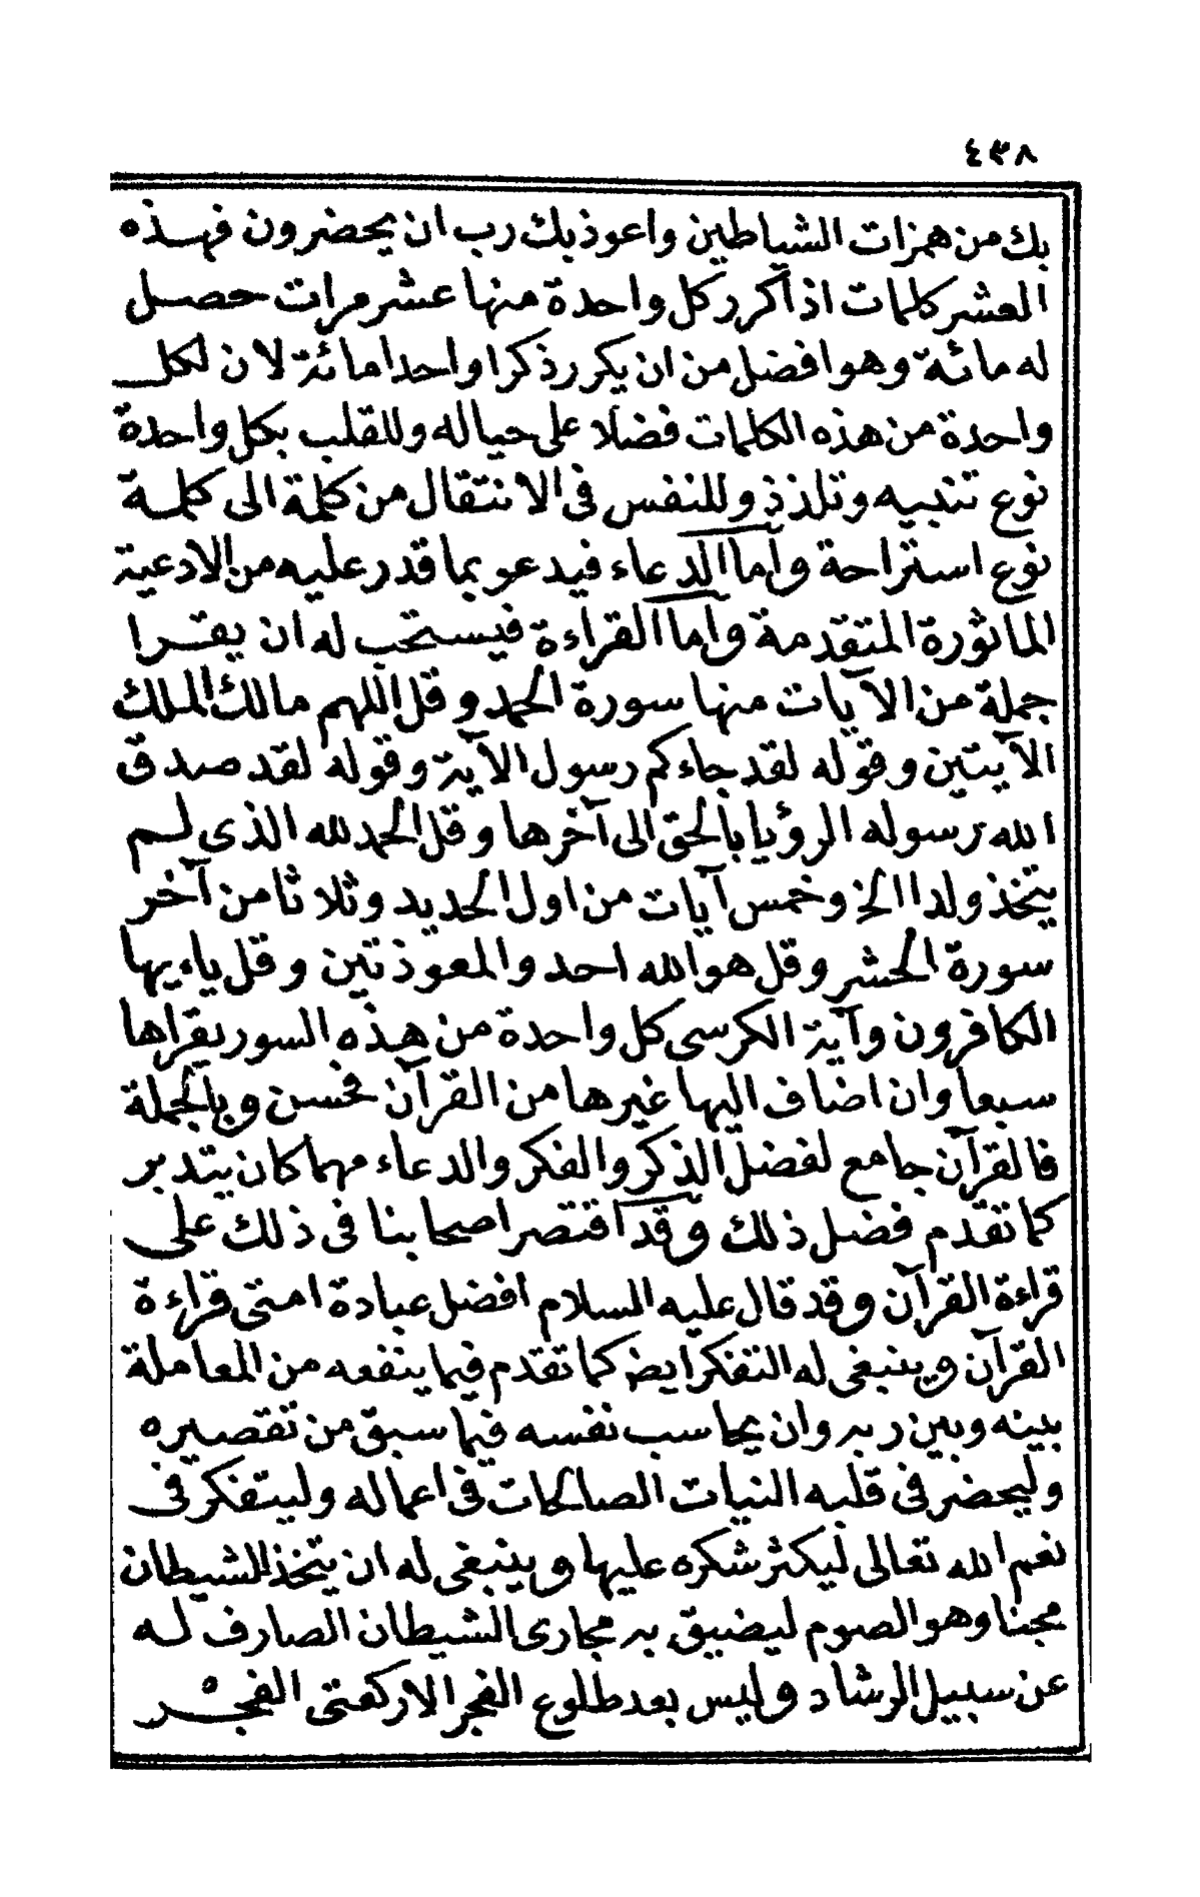 ٤٣٨
بك من همزات الشياطين واعوذ بك رب ان يحضرون فهذه
العشر كلمات اذا كرر كل واحدة منها عشر مرات حصل
له مائة وهو افضل من ان يكرر ذكرا واحدا مائة لان لكل
واحدة من هذه الكلمات فضلا على حياله وللقلب بكل واحدة
نوع تنبيه وتلذذ وللنفس فى الانتقال من كلمة الى كلمة
نوع استراحة وأما الدعاء فيدعو بما قدر عليه من الادعية
الماثورة المتقدمة وأما القراءة فيستحب له ان يقرا
جملة من الآيات منها سورة الحمد وقل اللهم مالك الملك
الآيتين وقوله لقد جاءكم رسول الآية وقوله لقد صدق
الله رسوله الرؤيا بالحق الى آخرها وقل الحمد لله الذى لم
يتخذ ولدا الخ وخمس آيات من اول الحديد وثلاثا من آخر
سورة الحشر وقل هو الله احد والمعوذتين وقل ياءيها
الكافرون وآية الكرسى كل واحدة من هذه السور يقراها
سبعا وان اضاف اليها غيرها من القرآن فحسن وبالجملة
فالقرآن جامع لفضل الذكر والفكر والدعاء مهما كان يتدبر
كما تقدم فضل ذلك وقد اقتصر اصحابنا فى ذلك على
قراءة القرآن وقد قال عليه السلام افضل عبادة امتى قراءة
القرآن وينبغى له التفكر ايض كما تقدم فيما ينفعه من المعاملة
بينه وبين ربه وان يحاسب نفسه فيما سبق من تقصيره
وليحضر فى قلبه النيات الصالحات فى اعماله وليتفكر فى
نعم الله تعالى ليكثر شكره عليها وينبغى له ان يتخذ للشيطان
مجنا وهو الصوم ليضيق به مجارى الشيطان الصارف له
عن سبيل الرشاد وليس بعد طلوع الفجر الا ركعتى الفجر